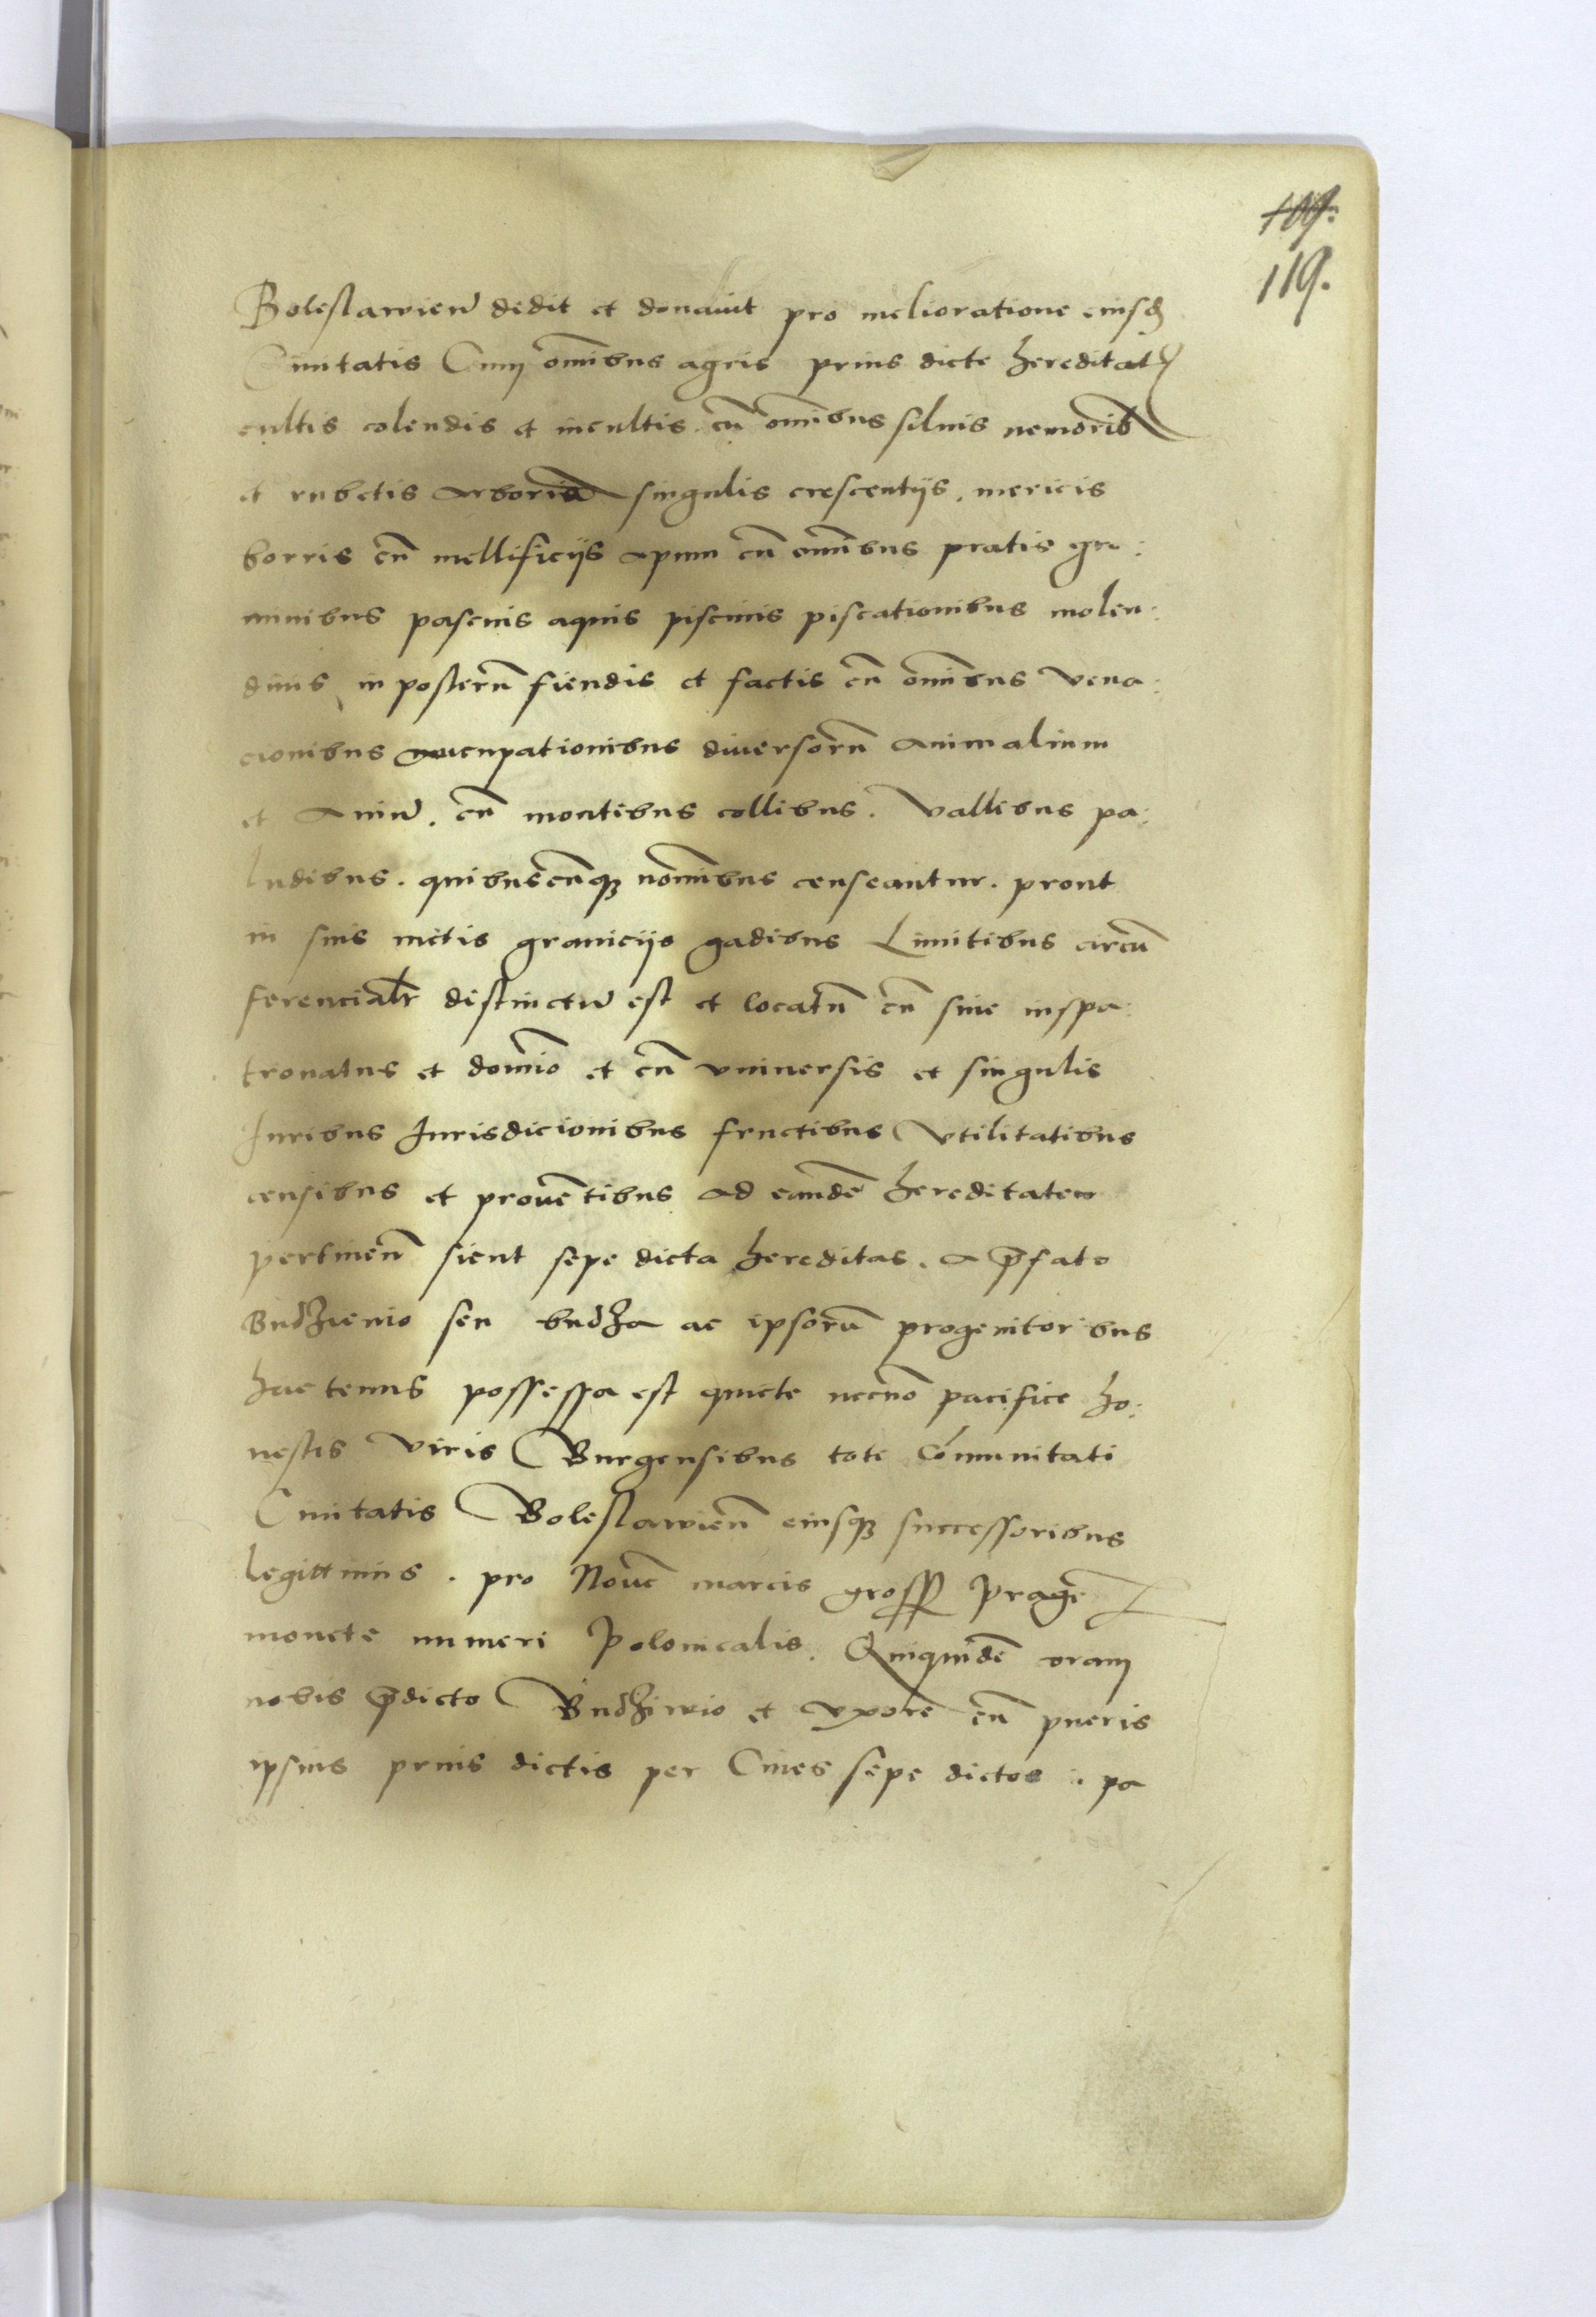 109.
119.
Boleslawieñ dedit et donauit pro melioratione eiusd
Ciuitatis Cum om̃ibus agris prius dicte hereditat
cultis colendis et incultis. cũ om̃ibus siluis nemorib
et rubetis arborũ singulis crescentijs. mericis
borris cũ mellificijs apum cũ om̃ibus pratis gra:
minibus pascuis aquis piscinis piscationibus molen:
dinis in posterũ fiendis et factis cũ om̃ibus Vena:
cionibus aucupationibus diuersorũ animalium
et Auiũ. cũ montibus collibus. Vallibus pa:
ludibus. quibuscũq nom̃ibus censeantur. prout
in suis metis granicijs gadibus Limitibus circũ
ferencialr distinctũ est et locatũ cũ siue iuspa:
tronatus et domĩo et cũ vniuersis et singulis
Juribus Jurisdicionibus fructibus Vtilitatibus
censibus et prouẽtibus ad eandẽ hereditatem
pertineñ sicut sepe dicta hereditas. a p̃fato
Budzienio seu budza ac ipsorũ progenitoribus
hactenus possessa est quiete necnõ pacifice ho:
nestis Viris Burgensibus toti Cõmunitati
Ciuitatis Boleslawieñ eiusq successoribus
legittimis. pro Nouẽ marcis gross Pragẽ
monete numeri Polonicalis. Quiquidẽ coram
nobis p̃dicto Budziwio et Vxore cũ pueris
ipsius prius dictis per Ciues sepe dictos. pa